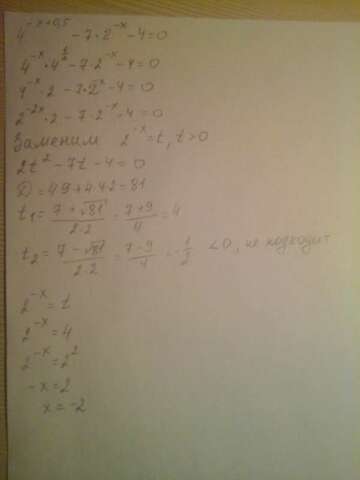 4^(-x+0,5) - 7·2^(-x) - 4 = 0
4^(-x)·4^(1/2) - 7·2^(-x) - 4 = 0
4^(-x)·2 - 7·2^(-x) - 4 = 0
2^(-2x)·2 - 7·2^(-x) - 4 = 0
Заменим 2^(-x) = t, t>0
2t² - 7t - 4 = 0
D = 49 + 4·4·2 = 81
t₁ = (7+√81)/(2·2) = (7+9)/4 = 4
t₂ = (7-√81)/(2·2) = (7-9)/4 = -1/2 <0, не подходит
2^(-x) = t
2^(-x) = 4
2^(-x) = 2²
-x = 2
x = -2